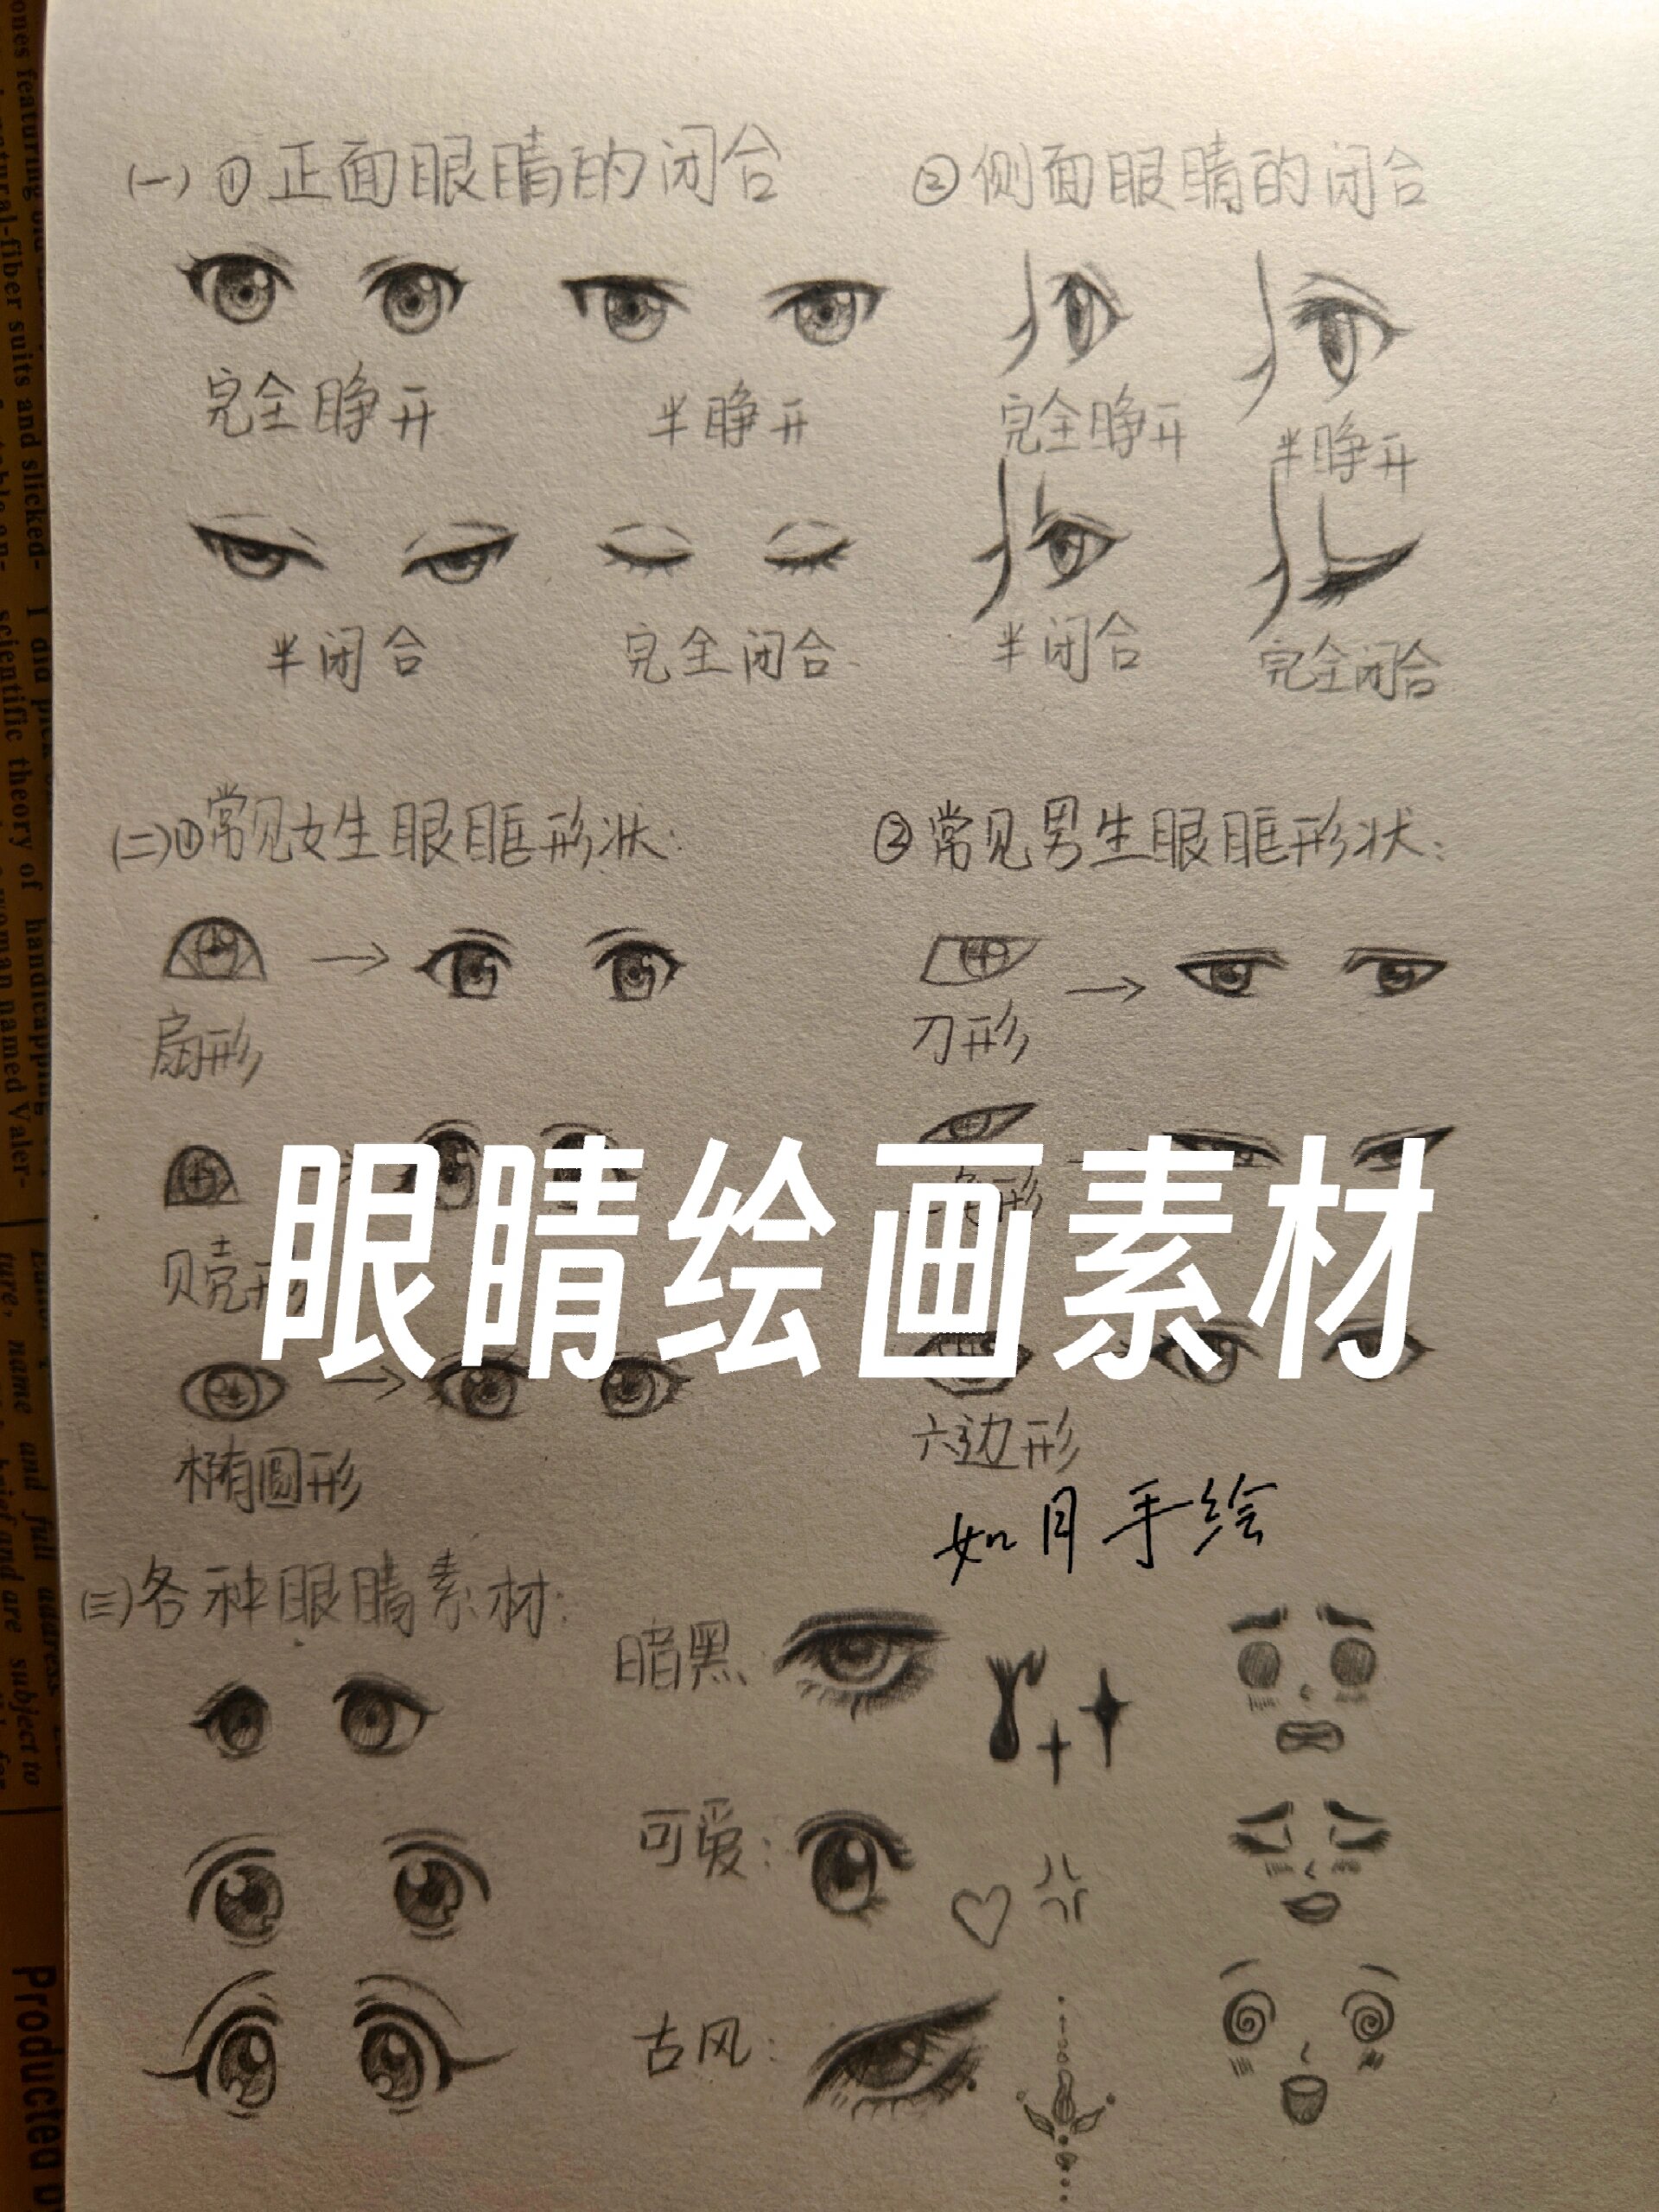 (一)①正面眼睛的闭合
②侧面眼睛的闭合
完全睁开
半睁开
完全睁开
半睁开
半闭合
完全闭合
半闭合
完全闭合
(二)①常见女生眼眶形状:
②常见男生眼眶形状:
扇形
刀形
眼睛绘画素材
贝壳形
椭圆形
六边形
如月手绘
(三)各种眼睛素材:
暗黑
可爱:
古风:
ones featuring
suits and slicked-
scientific theory of handicapping
woman named Valer-
name and full address
brief and are subject to
Producted